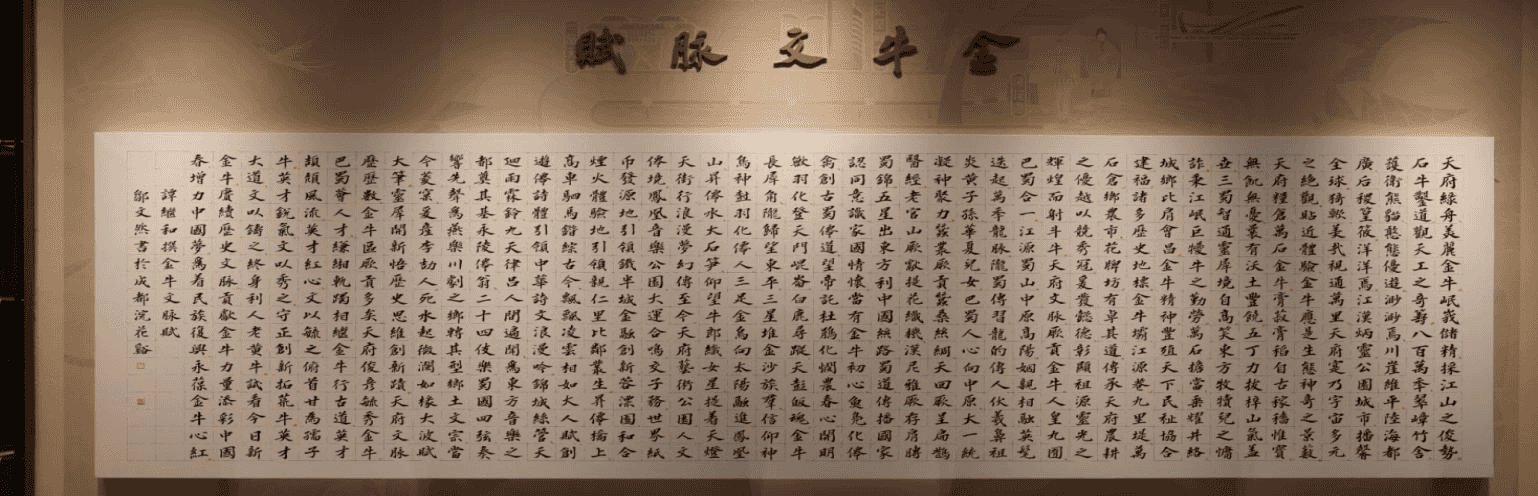 金牛文脉賦
天府緑舟美麗金牛岷峩儲精採江山之俊勢
石牛鑿道觀天工之奇壽八百萬季鄰嶂竹含
護衛熊貓憨態優遊渺渺焉川崖維平陸海都
廣后稷堂筱洋洋焉江漢炳靈公園城市播馨
全球猗歟美哉視通萬里天府寔乃宇宙多元
之絕觀貼近體驗金牛應是生態神奇之景藪
天府糧倉萬石金牛膏菽膏稻自古稼穡惟寶
無飢無憂業有沃土豐饒五丁力拔捍山氣蓋
三蜀智通靈犀境自高笑東方牧犢兒之慵
詐秉江岷巨犍牛之勤勞萬石擔當垂耀井絡
城鄉比肩會昌金牛精神豐殖天下民祉協合
建福諸多歷史地標金牛壩江源巷九里堤萬
石倉鄉農市花牌坊有卓其道傳承天府農耕
之優越以競秀冠爰發懿德彰顯祖源靈光之
輝煌而射斗牛天府文脉厥貢金牛人皇九囿
巴蜀合一江源蜀山中原高陽姻親相融英髦
迭起萬季龍脉隴蜀傳習龍的傳人伏羲鼻祖
炎黃子孫華夏兒女巴蜀人心向中原大一統
凝神聚力蠶叢厥貢蠶桑絲綢天回厥呈扁鵲
醫經老官山厥獻提花織機漢尼雅厥存膺勝
蜀錦五星出東方利中國絲路蜀道傳播國家
認同意識家國情懷當有金牛初心鱼鳧化俸
禽創古蜀俸道望帝託杜鵑化憫農春心開明
敏羽化登天門崐崙白鹿尋蹤天彭皈魂金牛
長犀角隴歸望東平三星堆金沙族羣信仰神
鳥神樹羽化俸人三足金烏向太陽融進鳳凰
山昇俸水大石笋仰望牛郎織女星提着天燈
天街行浪漫夢幻傳至今天府藝術公園人文
俸境鳳凰音樂公園大運合鳴交子務世界紙
币發源地引領鐵半城金融創新蓉漂園和合
煙火體驗地引領親仁里比鄰叢生昇俸橋上
高車駟馬鐕綜古今飄飄凌雲相如大人賦創
遊俸詩體引領中華詩文浪漫吟錦城絲管天
迴雨霖鈴九天律吕人間遍聞爲東方音樂之
都奠其基永陵俸翁二十四伎樂蜀國四弦奏
響先聲爲燕樂川劇之鄉轉其型鄉土文宗當
今菱窠爰產李劼人死水起微瀾如椽大波賦
大筆靈犀開新悟歷史思維創新蹟天府文脉
歷歷數金牛區厥貢多矣天府俊彦毓秀金牛
巴蜀薈人才縑緗軌躅相繼金牛行古道英才
頡頏風流英才紅心文以毓之俯首甘爲孺子
牛英才銳氣文以秀之守正創新拓荒牛英才
大道文以鑄之終身利人老黄牛試看今日新
金牛賡續歷史文脉貢獻金牛力量添彩中國
春增力中國夢爲看民族復興永葆金牛心紅
譚繼和撰金牛文脉賦
鄒文然書於成都浣花谿